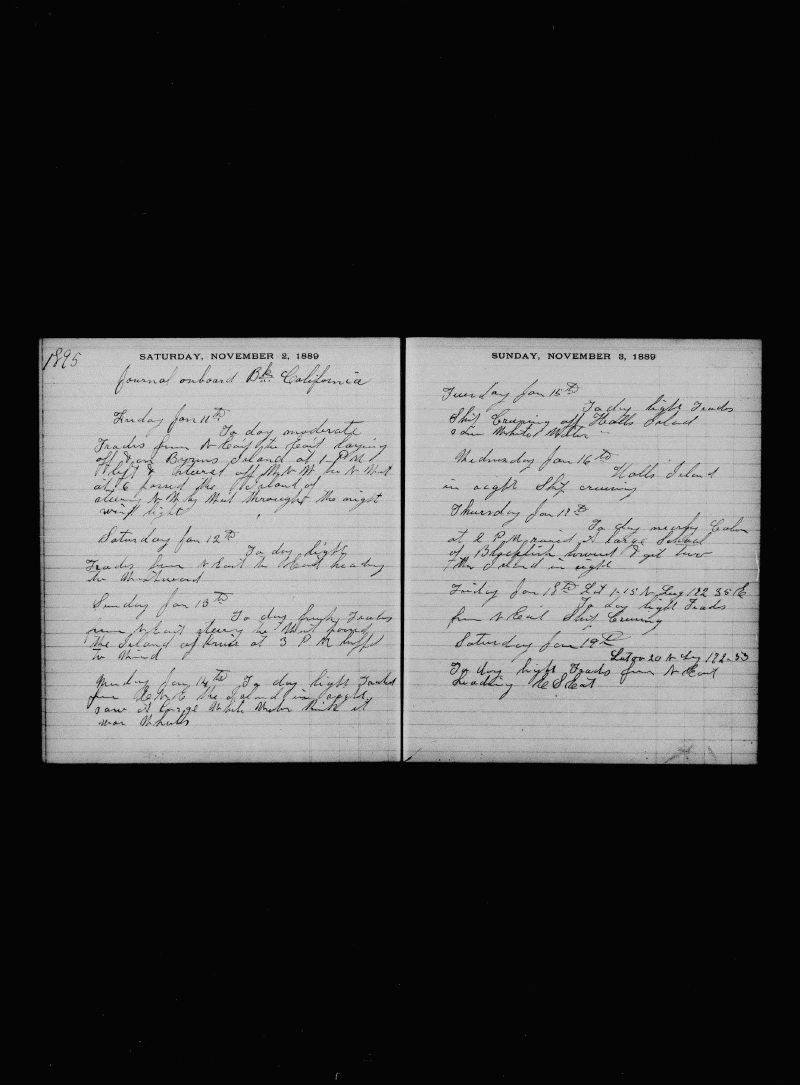 1895
SATURDAY, NOVEMBER 2, 1889
Journal onboard Bk. California
Friday Jan 11th
To day moderate
Trades from N East the East laying
off & on Byrons Island at 1 P M
left & steered off W N W to N West
at 6 passed the Island of
steering N W by West throught the night
wind light
Saturday Jan 12th
To day light
Trades from N East to East heading
to
Sunday Jan 13th
To day fresh Trades
from N East steering to West
the Island of at 3 P M luffed
to Wind
Monday Jan 14th To day light Trades
from E N E the Island in sight
saw A large White Water think it
was Whales
SUNDAY, NOVEMBER 3, 1889
Tuesday Jan 15th
To day light Trades
Ship Cruising off Halls Island
saw White Water
Wednesday Jan 16th
Halls Island
in sight Ship cruising
Thursday Jan 17th
To day nearly Calm
at 2 P M raised A large School
of Blackfish lowered & got two
the Island in sight
Friday Jan 18th Lat 1-15 N Lng 172 35 E
To day light Trades
from N East Ship Cruising
Saturday Jan 19th
Lat 00 20 N Lng 172-53
To day light Trades from N East
heading E S East